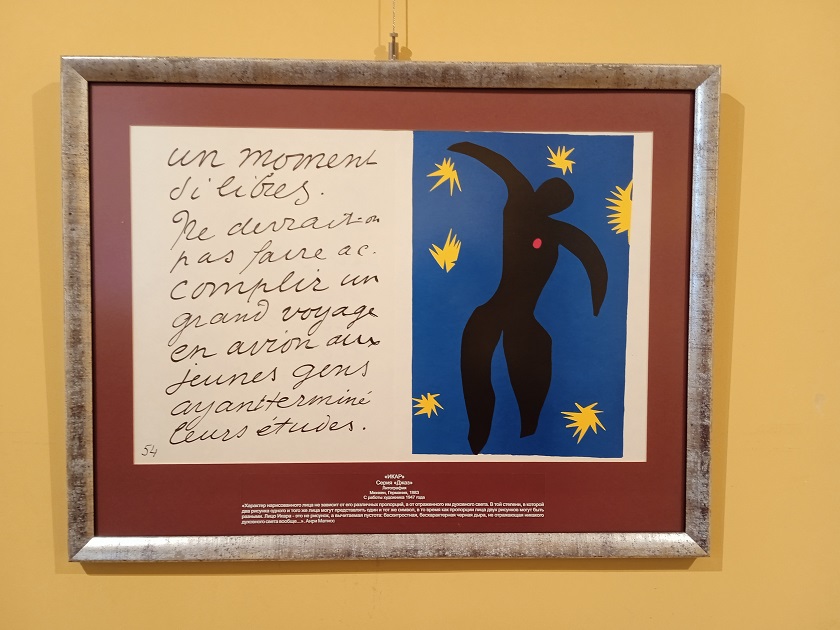 un moment
si libres.
Ne devrait-on
pas faire ac-
complir un
grand voyage
en avion aux
jeunes gens
ayant terminé
leurs études.
54
«ИКАР»
Серия «Джаз»
Литография
Мюнхен, Германия, 1983
С работы художника 1947 года
«Характер нарисованного лица не зависит от его различных пропорций, а от отраженного им духовного света. В той степени, в которой
два рисунка одного и того же лица могут представлять один и тот же символ, в то время как пропорции лица двух рисунков могут быть
разными. Лицо Икара - это не рисунок, а вычитаемая пустота: бесхитростная, бесхарактерная черная дыра, не отражающая никакого
духовного света вообще...». Анри Матисс